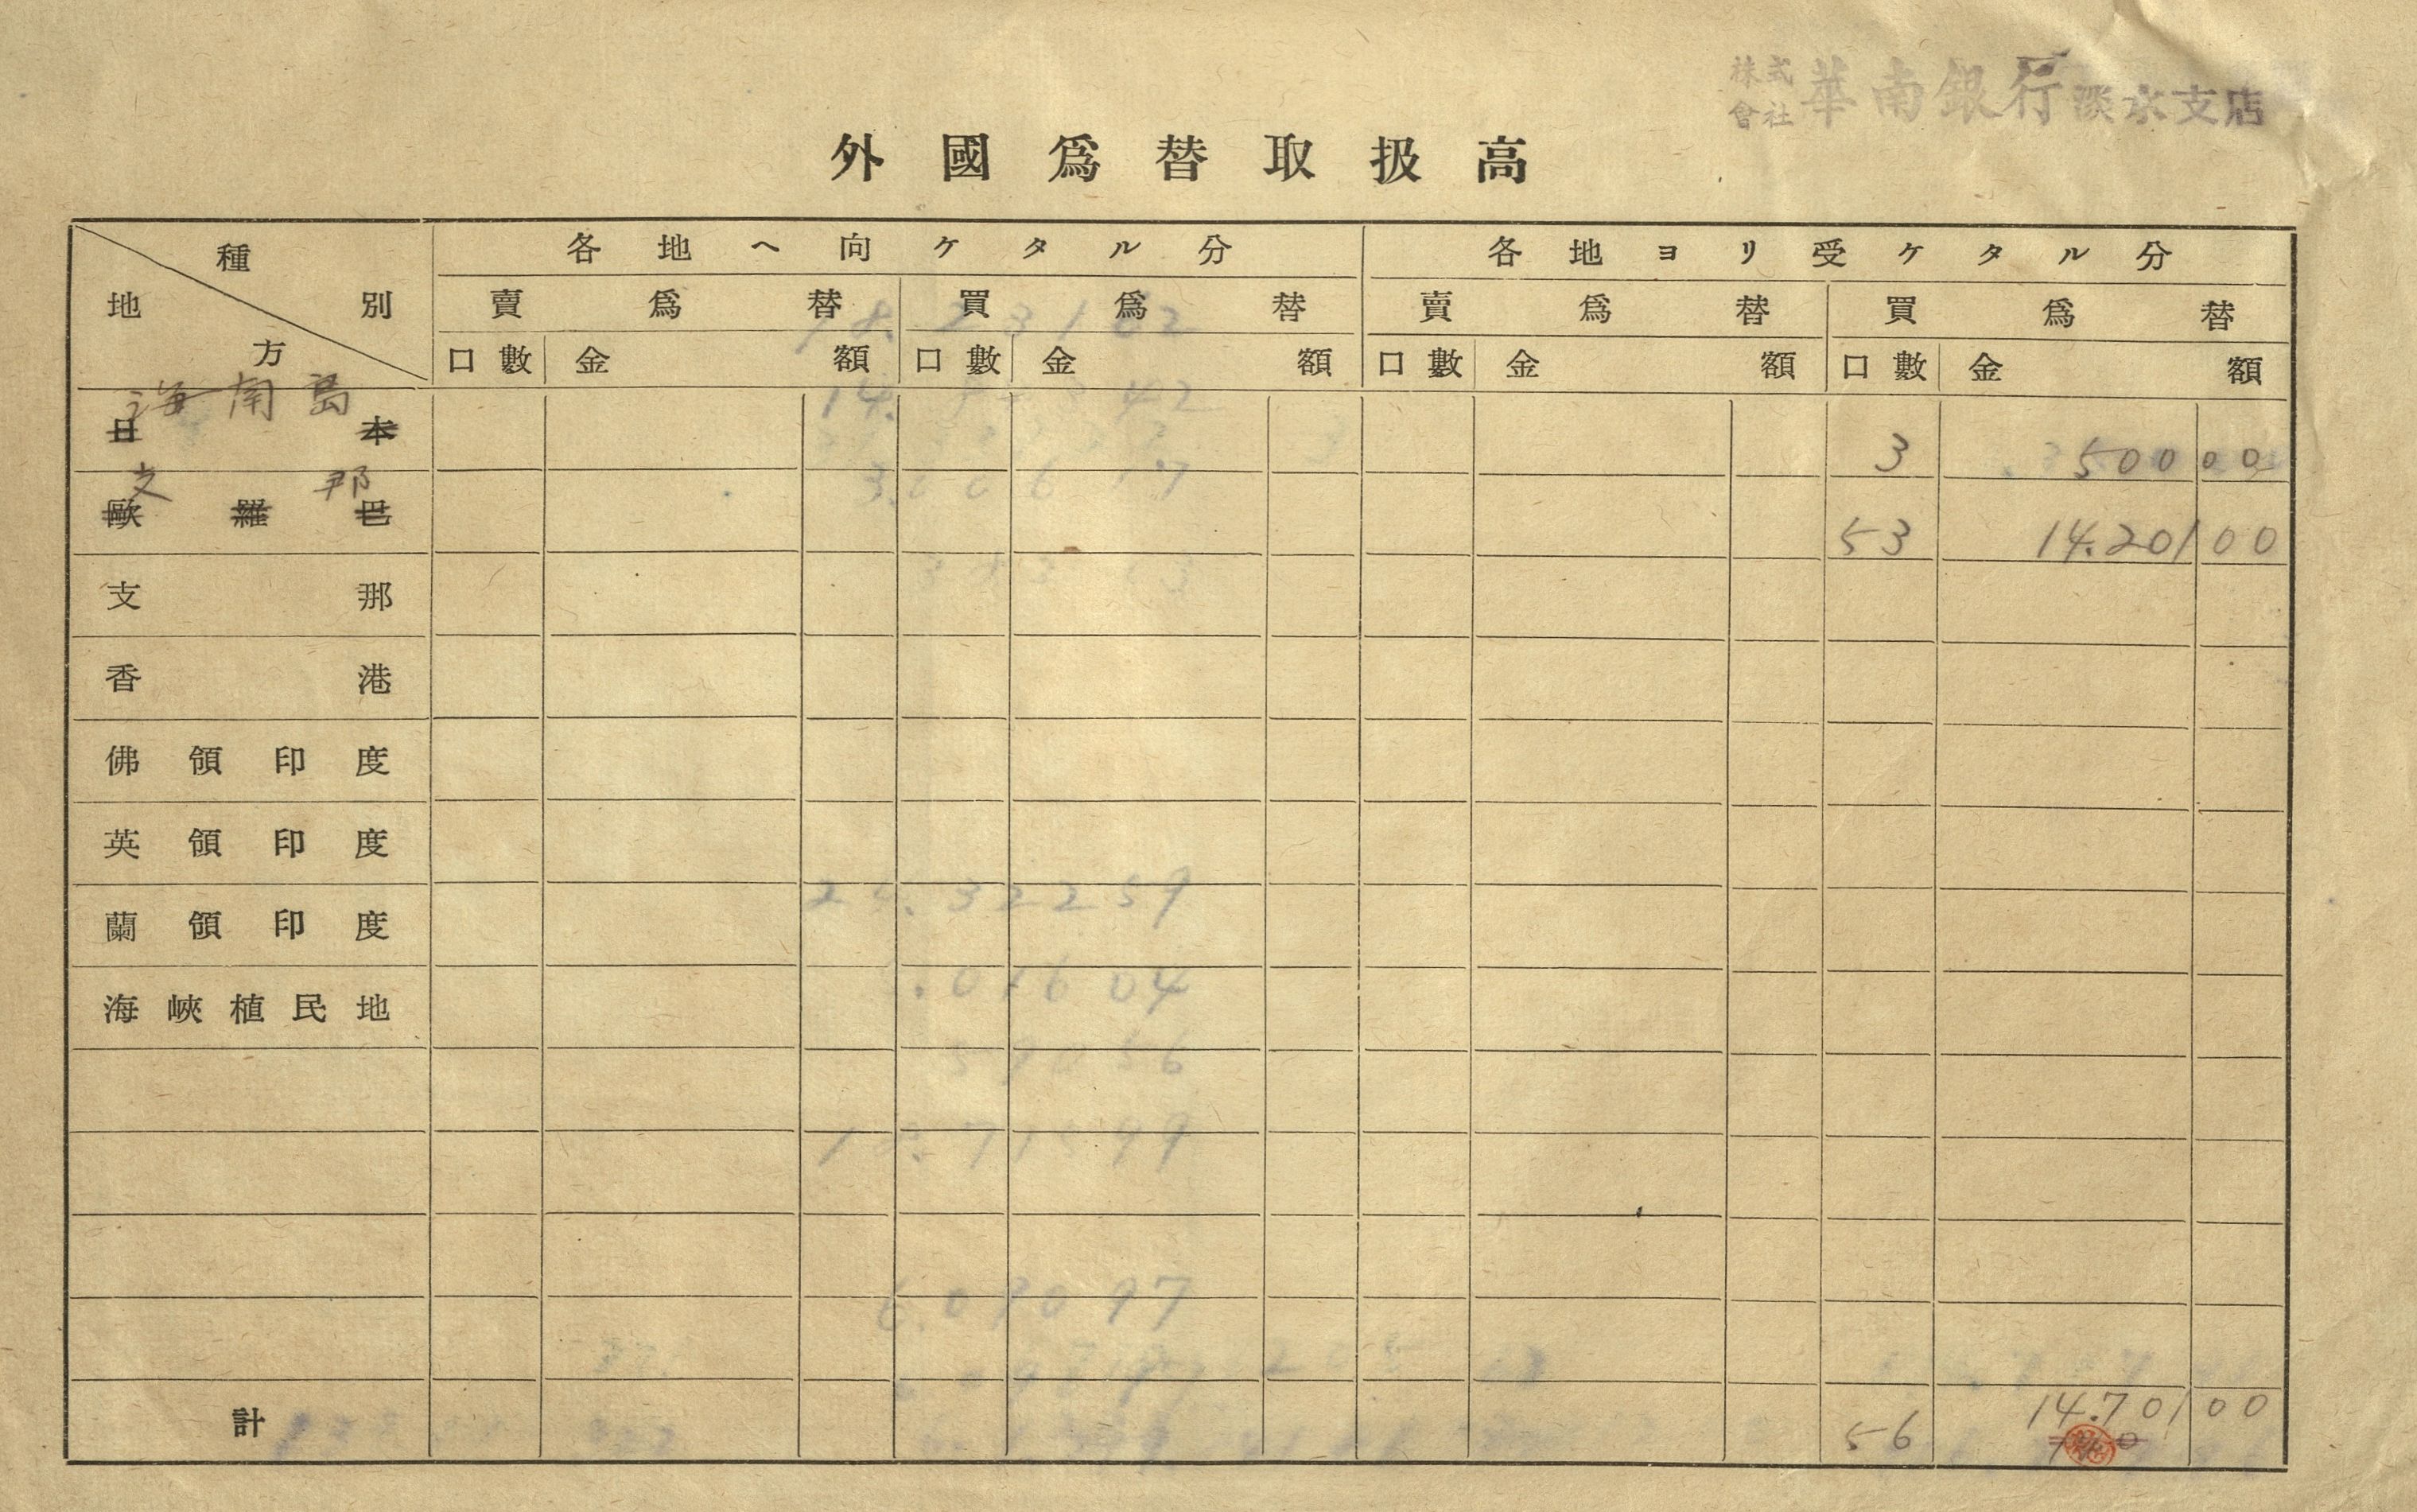 株式會社 華南銀行 淡水支店
外國爲替取扱高
種別 地方 各地ヘ向ケタル分 各地ヨリ受ケタル分
賣爲替 買爲替 賣爲替 買爲替
口數 金額 口數 金額 口數 金額 口數 金額
海南島
日本 3 500 00
支那
歐羅巴 53 14.201 00
支那
香港
佛領印度
英領印度
蘭領印度
海峽植民地
計 56 14.701 00